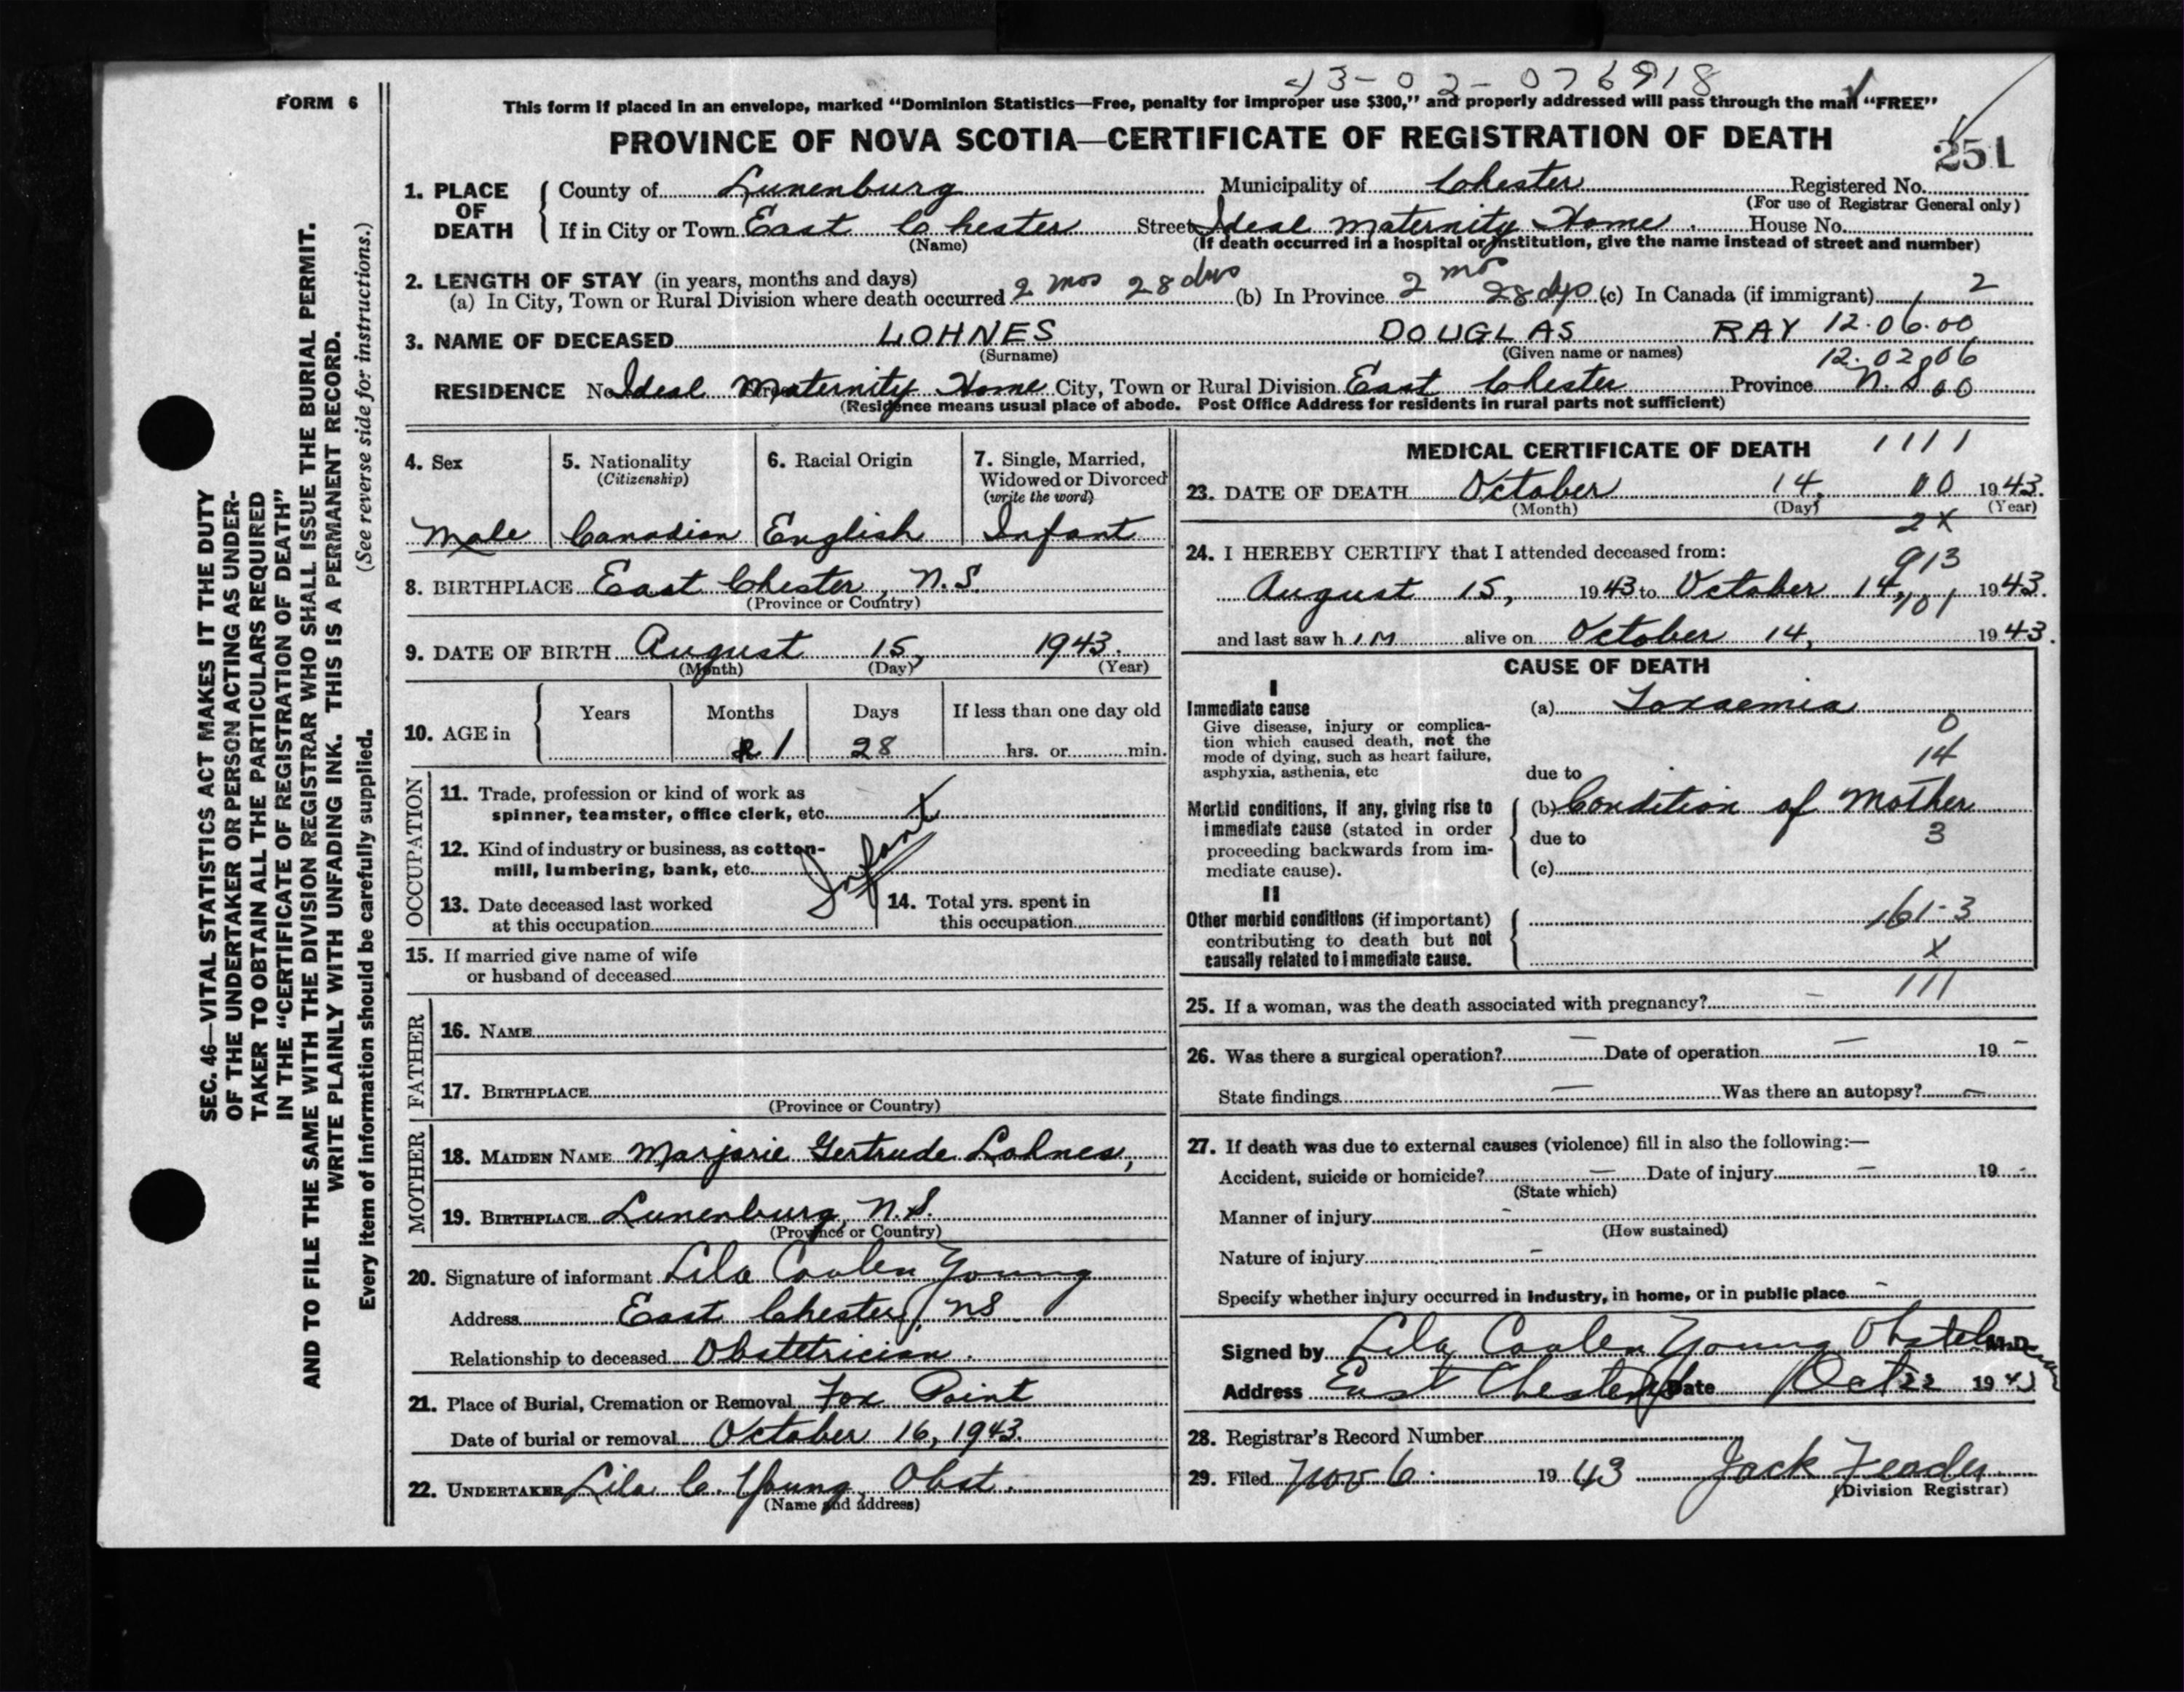 FORM 6
43-02-076918
This form if placed in an envelope, marked "Dominion Statistics—Free, penalty for improper use $300," and properly addressed will pass through the mail "FREE"
PROVINCE OF NOVA SCOTIA—CERTIFICATE OF REGISTRATION OF DEATH
251
1. PLACE OF DEATH
County of Lunenburg Municipality of Chester Registered No.
(For use of Registrar General only)
If in City or Town East Chester Street Ideal Maternity Home. House No.
(Name) (If death occurred in a hospital or institution, give the name instead of street and number)
2. LENGTH OF STAY (in years, months and days)
(a) In City, Town or Rural Division where death occurred 2 mos 28 dys (b) In Province 2 mos 28 dys (c) In Canada (if immigrant) 1 2
3. NAME OF DECEASED LOHNES DOUGLAS RAY 12.06.00
(Surname) (Given name or names)
12.02806
RESIDENCE No Ideal Maternity Home City, Town or Rural Division East Chester Province N.S 00
(Residence means usual place of abode. Post Office Address for residents in rural parts not sufficient)
4. Sex
Male
5. Nationality
(Citizenship)
Canadian
6. Racial Origin
English
7. Single, Married, Widowed or Divorced
(write the word)
Infant
8. BIRTHPLACE East Chester, N.S.
(Province or Country)
9. DATE OF BIRTH August 15, 1943.
(Month) (Day) (Year)
10. AGE in
Years Months Days If less than one day old
1 28 hrs. or min.
OCCUPATION
11. Trade, profession or kind of work as
spinner, teamster, office clerk, etc.
12. Kind of industry or business, as cotton-
mill, lumbering, bank, etc.
Infant
13. Date deceased last worked
at this occupation
14. Total yrs. spent in
this occupation
15. If married give name of wife
or husband of deceased
FATHER
16. NAME
17. BIRTHPLACE
(Province or Country)
MOTHER
18. MAIDEN NAME Marjorie Gertrude Lohnes,
19. BIRTHPLACE Lunenburg, N.S.
(Province or Country)
20. Signature of informant Lila Coolen Young
Address East Chester, NS
Relationship to deceased Obstetrician.
21. Place of Burial, Cremation or Removal Fox Point
Date of burial or removal October 16, 1943.
22. UNDERTAKER Lila C. Young, Obst.
(Name and address)
MEDICAL CERTIFICATE OF DEATH 1111
23. DATE OF DEATH October 14, 00 1943.
(Month) (Day) (Year)
2X
24. I HEREBY CERTIFY that I attended deceased from:
913
August 15, 1943 to October 14, 1943.
101
and last saw h im alive on October 14, 1943.
CAUSE OF DEATH
I
Immediate cause
Give disease, injury or complica-
tion which caused death, not the
mode of dying, such as heart failure,
asphyxia, asthenia, etc
(a) Toxaemia
0
14
due to
Morbid conditions, if any, giving rise to
immediate cause (stated in order
proceeding backwards from im-
mediate cause).
(b) Condition of Mother
due to 3
(c)
II
Other morbid conditions (if important)
contributing to death but not
causally related to immediate cause.
161-3
X
111
25. If a woman, was the death associated with pregnancy? —
26. Was there a surgical operation? — Date of operation — 19 —
State findings — Was there an autopsy? —
27. If death was due to external causes (violence) fill in also the following:—
Accident, suicide or homicide? — Date of injury — 19 -
(State which)
Manner of injury -
(How sustained)
Nature of injury -
Specify whether injury occurred in industry, in home, or in public place -
Signed by Lila Coolen Young M.D.
Address East Chester Date Oct 22 1943
28. Registrar's Record Number
29. Filed Nov 6. 1943 Jack
(Division Registrar)
SEC. 46—VITAL STATISTICS ACT MAKES IT THE DUTY
OF THE UNDERTAKER OR PERSON ACTING AS UNDER-
TAKER TO OBTAIN ALL THE PARTICULARS REQUIRED
IN THE "CERTIFICATE OF REGISTRATION OF DEATH"
AND TO FILE THE SAME WITH THE DIVISION REGISTRAR WHO SHALL ISSUE THE BURIAL PERMIT.
WRITE PLAINLY WITH UNFADING INK. THIS IS A PERMANENT RECORD.
Every item of information should be carefully supplied. (See reverse side for instructions.)